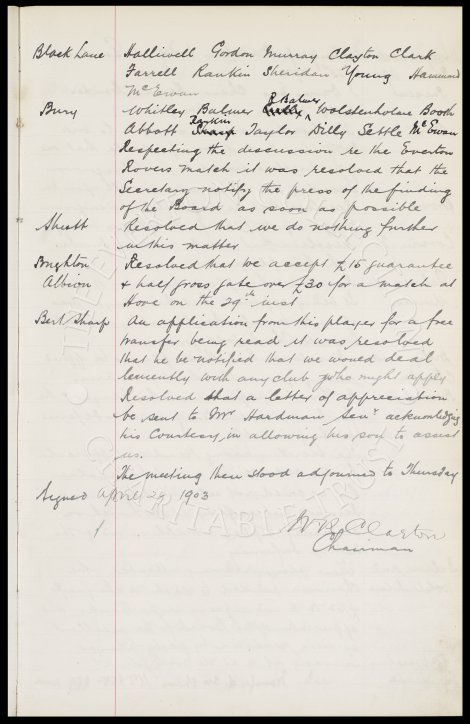 Black Lane Halliwell Gordon Murray Clayton Clark
Farrell Rankin Sheridan Young Hammond
McEwan
Bury Whitley Balmer R Balmer Wolstenholme Booth
Abbott Rankin Sharp Taylor Dilly Settle McEwan
Respecting the discussion re the Everton
Rovers match it was resolved that the
Secretary notify the press of the finding
of the Board as soon as possible
Resolved that we do nothing further
in this matter
Brighton Resolved that we accept £15 guarantee
Albion & half gross gate over £30 for a match at
Hove on the 29th inst
Bert Sharp An application from this player for a free
transfer being read it was resolved
that he be notified that we would deal
leniently with any club who might apply
Resolved that a letter of appreciation
be sent to Mr Hardman Senr acknowledging
his Courtesy in allowing his son to assist
us.
The meeting then stood adjourned to Thursday
Signed April 29 1903
W R Clayton
Chairman
CHARITABLE TRUST